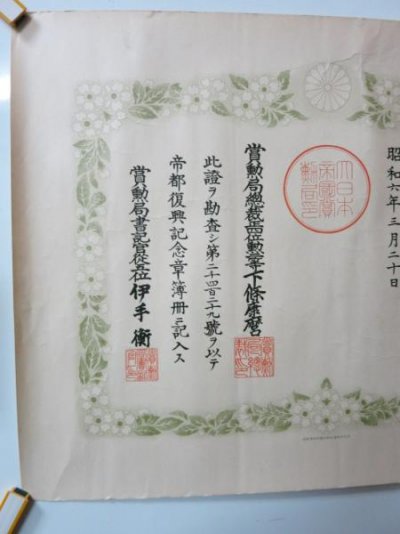 昭和六年三月二十日
大日本帝國賞勲局印
賞勲局總裁正四位勲二等下條康麿
此證ヲ勘査シ第二十四百二十九號ヲ以テ
帝都復興記念章簿冊ニ記入ス
賞勲局書記官從五位伊手衡